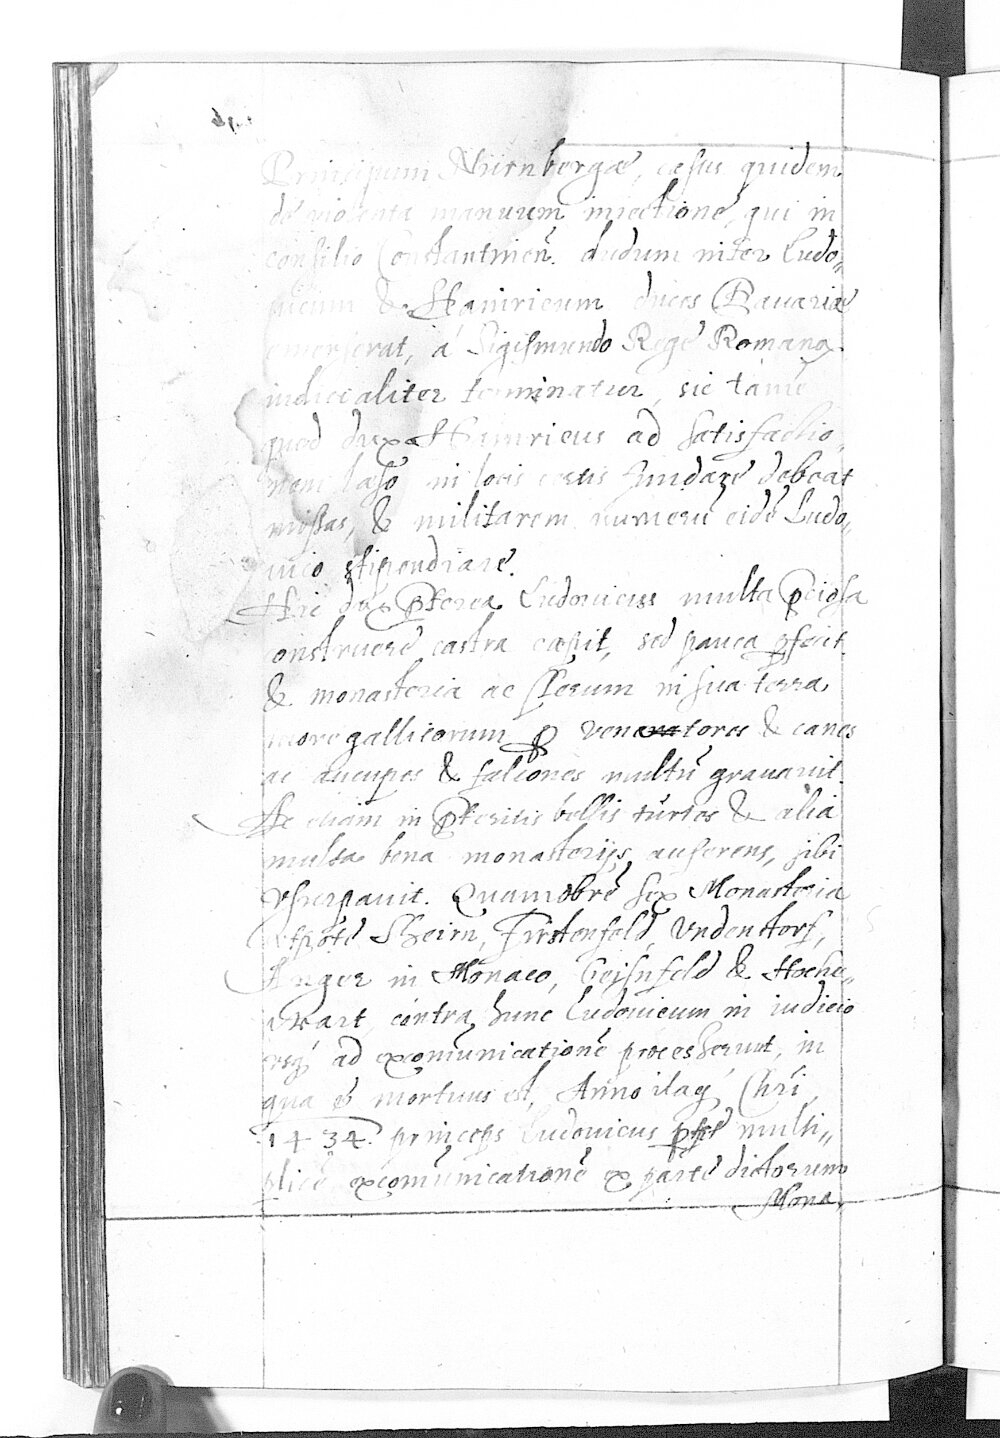 Principum Nürnbergæ, cæsus quidem
de violenta manuum iniectione, qui in
consilio Constantinen̄. dudum inter Ludo„
uicum & Hainricum duces Bauariæ
emerserat, á Sigismundo Rege Romano
iudicialiter terminatur, sic tamē
quod dux Hainricus ad satisfactio„
nem læso in locis certis fundare debeat
missas, & militarem numerū eidē Ludo„
uico stipendiare.
Hic dux p̄terea Ludouicus multa p̄ciosa
construere castra cœpit, sed pauca p̄fecit
& monasteria ac Clerum in sua terra,
more gallicorum p venatores & canes
ac aucupes & falcones multū grauauit.
Ac etiam in p̄teritis bellis turres & alia
multa bona monasterijs auferens, sibi
vsurpauit. Quamobrē sex Monasteria
vtpote Sheirn, Fürstenfeld, Vndenstorf,
Anger in Monaco, Geisnfeld & Hoche„
wart contra hunc Ludouicum in iudicio
vsq́ ad excom̄unicationē processerunt, in
qua & mortuus est, Anno itaq́ Chr̄i
1434. princeps Ludouicus p̄pt multi„
plicē excom̄unicationē ex parte dictorum
Mona„